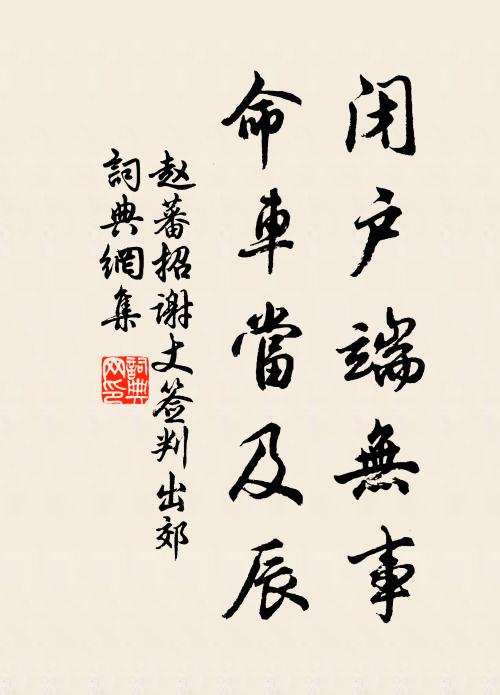 闭户端無事
命車當及辰
赵蕃招谢丈签判出郊
詞典網集
詞典
网印